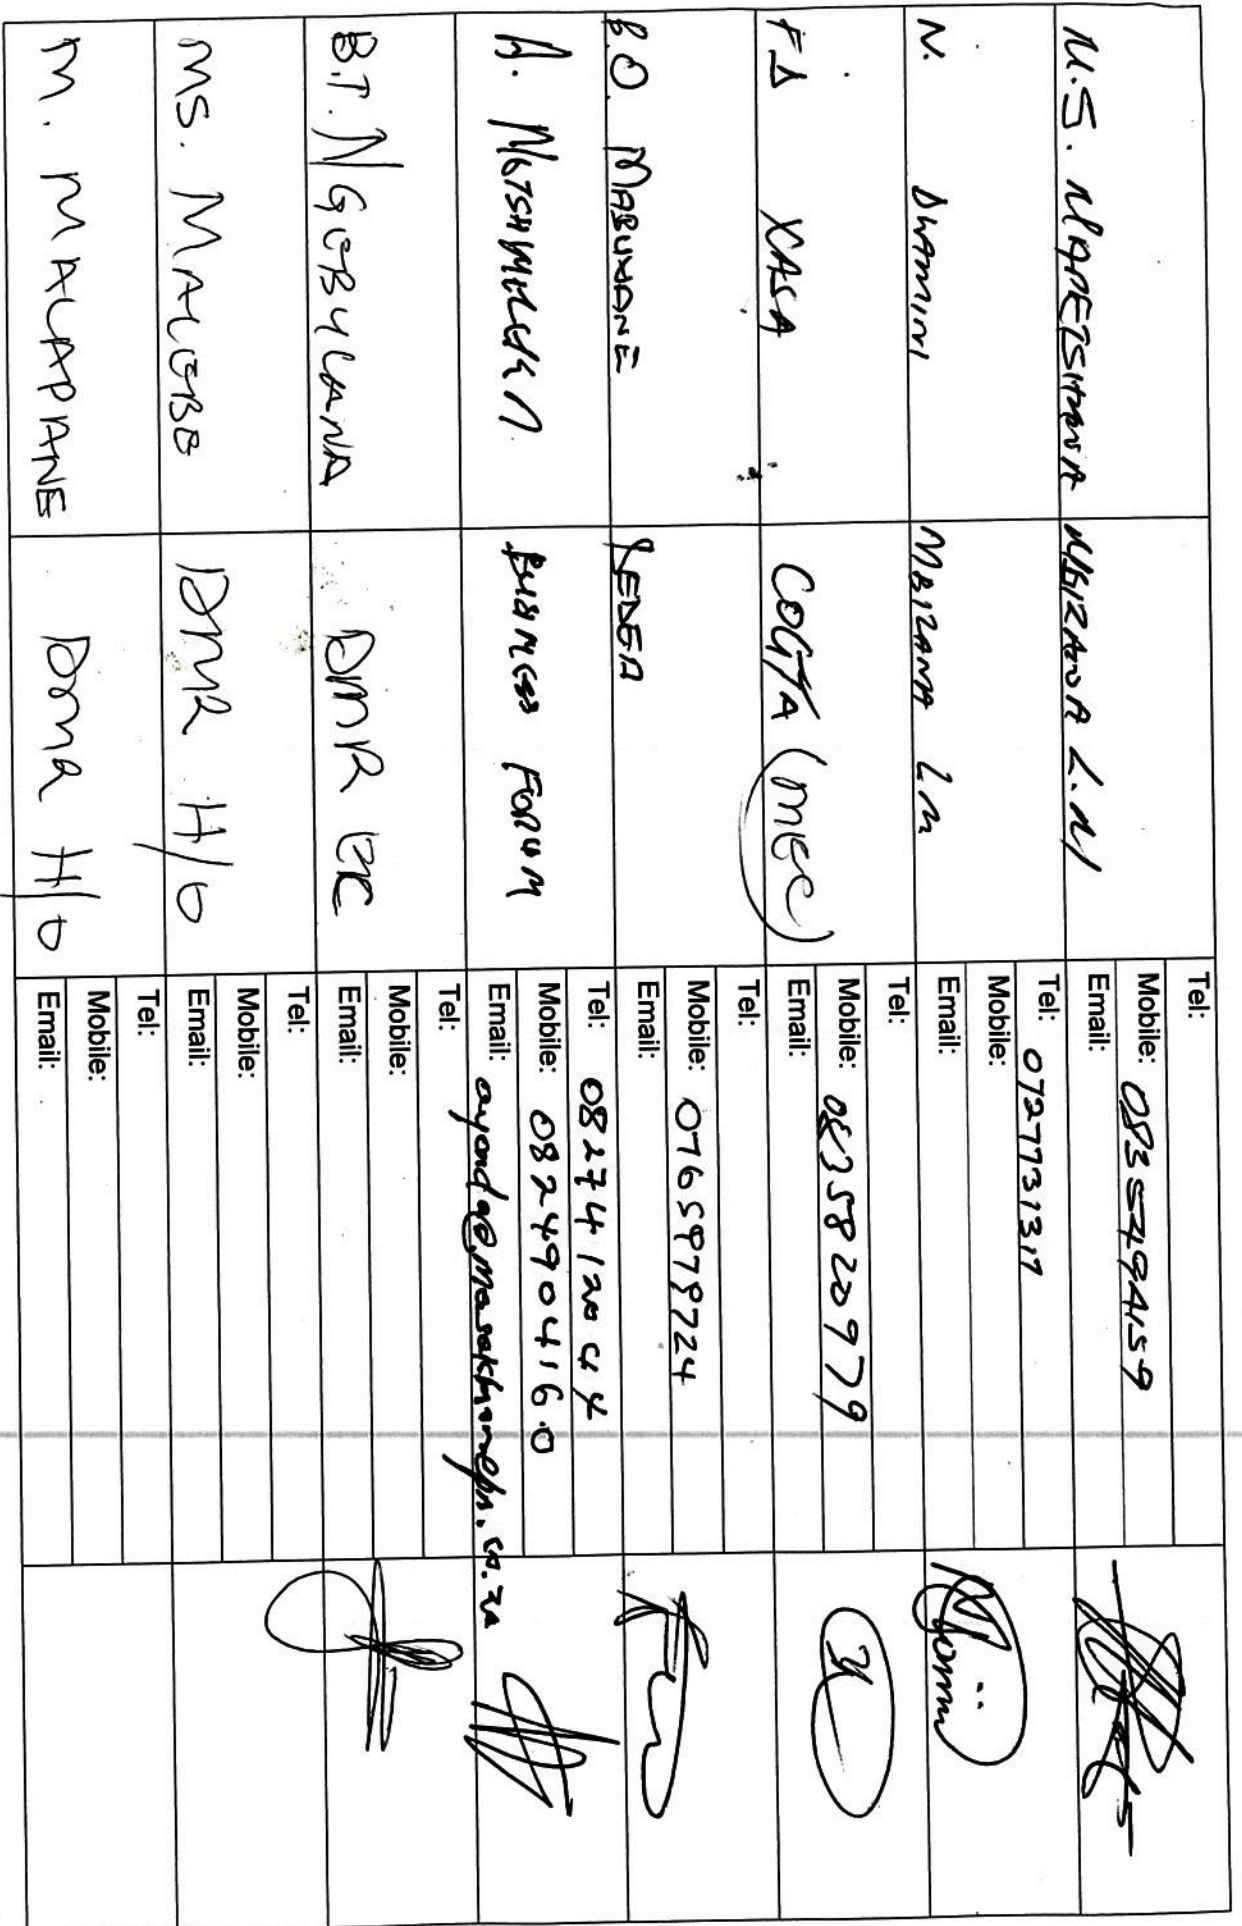 M.S. MAPETSHANA MBIZANA L.M
Tel:
Mobile: 0835494159
Email:
N. DLAMINI MBIZANA LM
Tel: 0727731317
Mobile:
Email:
FD XASA COGTA (MEC)
Tel:
Mobile: 0835820979
Email:
B.O MABUXANE SEDEA
Tel:
Mobile: 0765978724
Email:
A. BUSINESS FORUM
Tel: 0827412044
Mobile: 0824904160
Email:
B.T. NGUBULANA DMR EC
Tel:
Mobile:
Email:
MS. MALEBO DMR H/O
Tel:
Mobile:
Email:
M. MALAPANE DMR H/O
Tel:
Mobile:
Email: